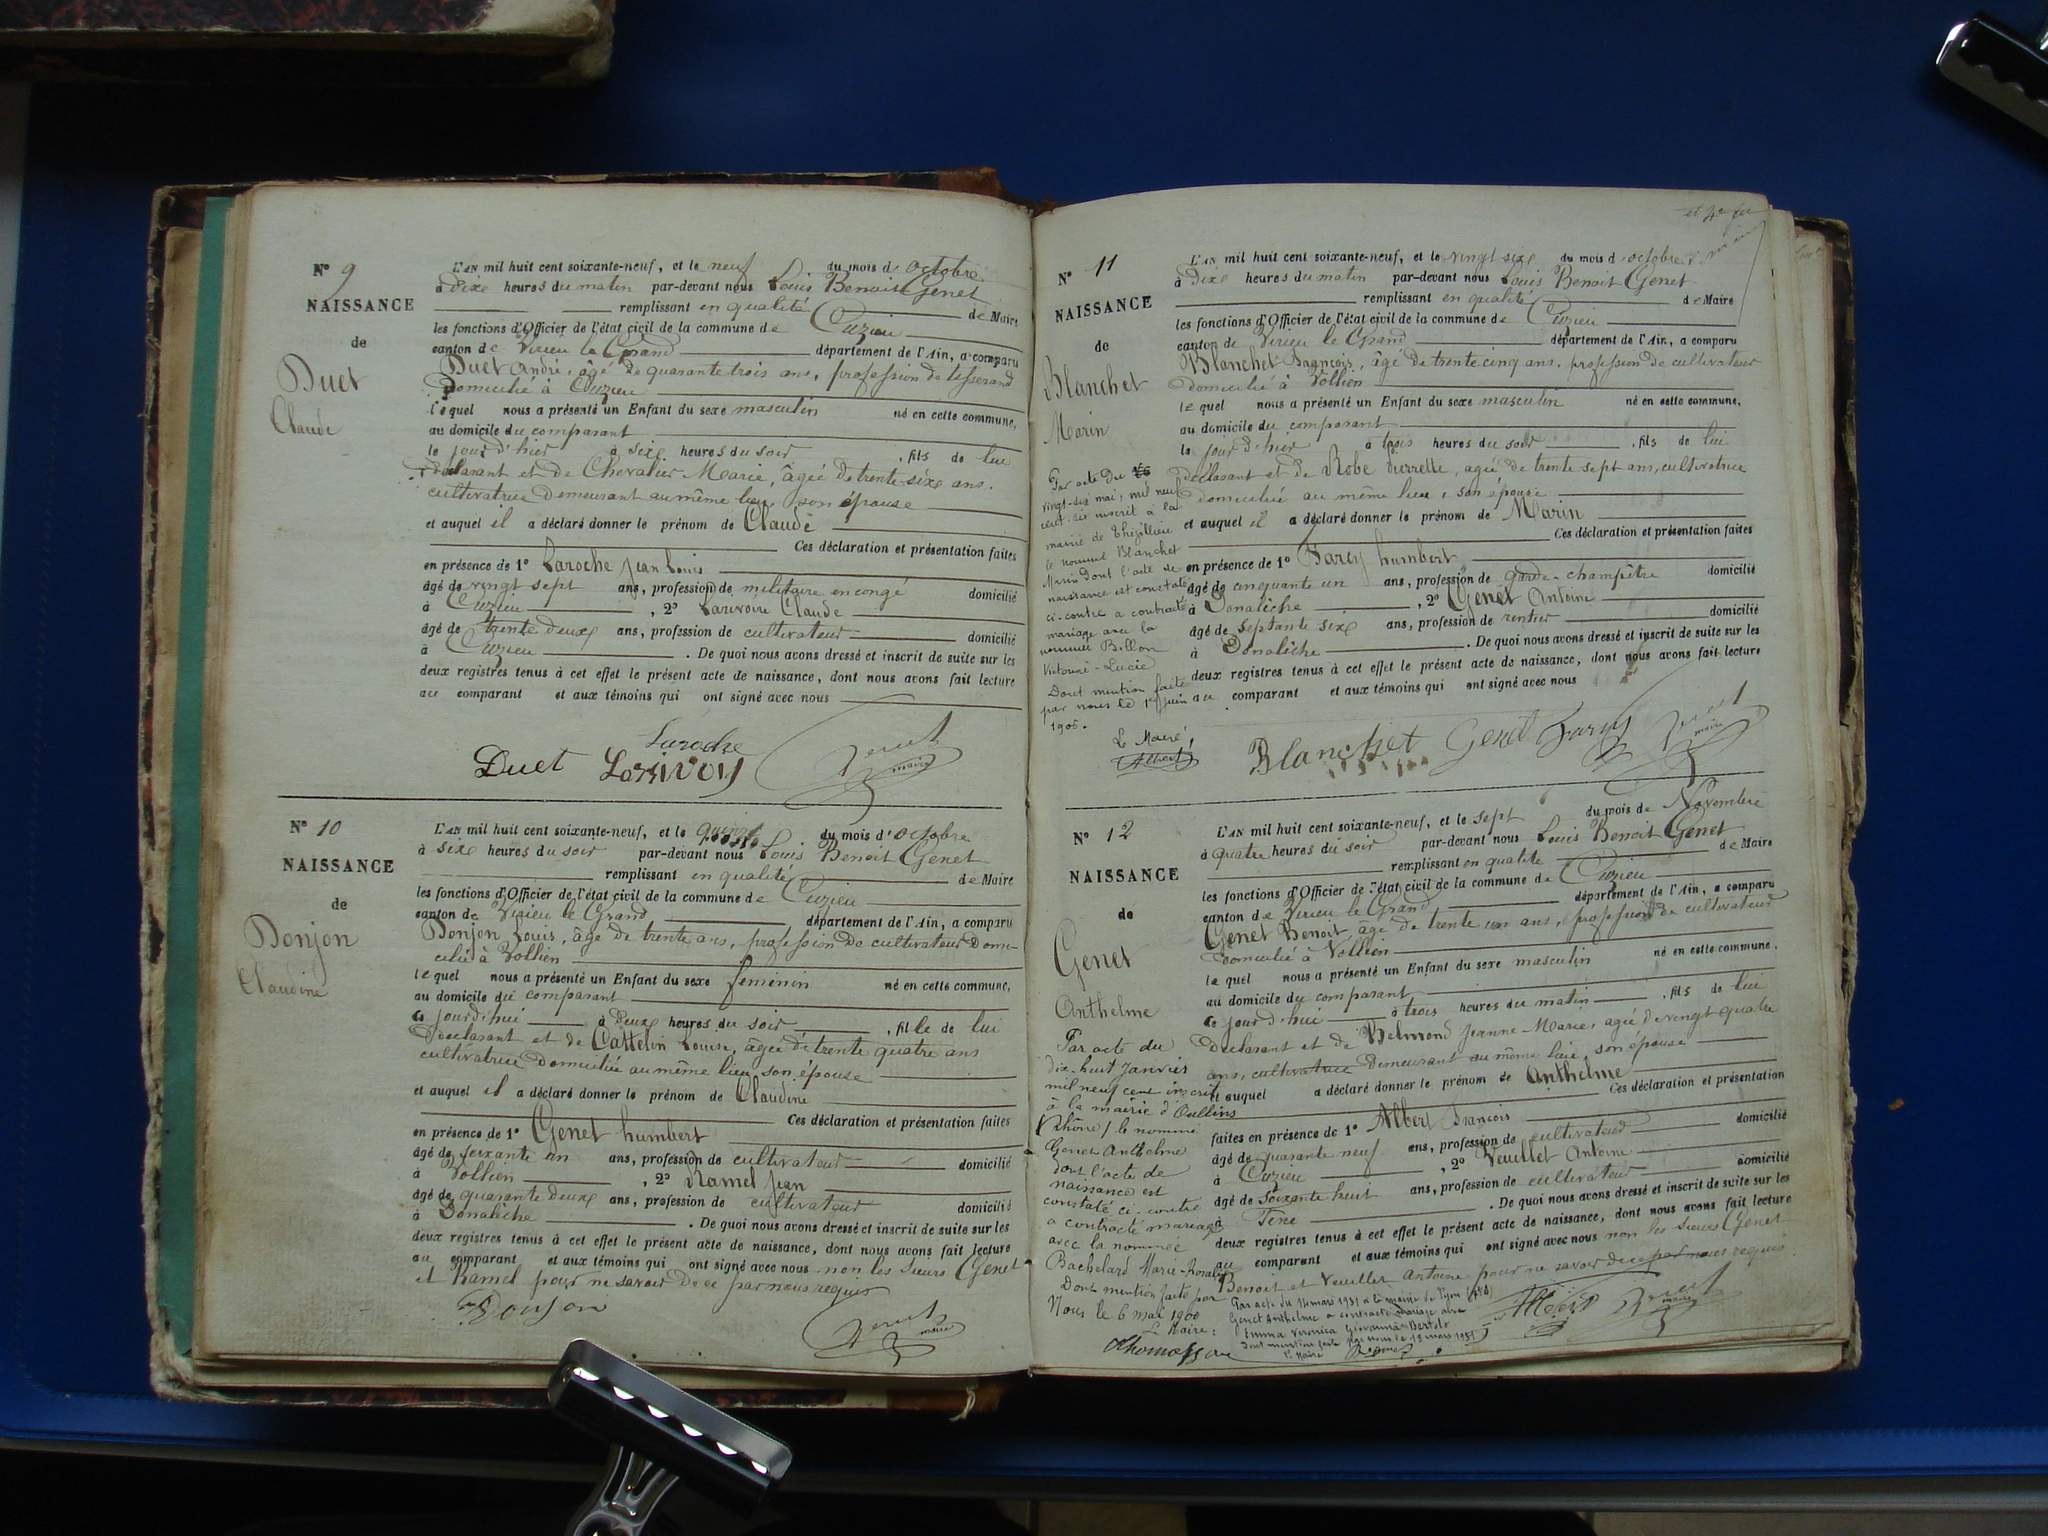 N° 9
NAISSANCE
de
Duet
Claude
L'AN mil huit cent soixante-neuf, et le neuf du mois d'octobre
à dixe heures du matin par-devant nous Louis Benoit Genet
remplissant en qualité de Maire
les fonctions d'Officier de l'état civil de la commune de Cuzieu
canton de Virieu le Grand département de l'Ain, a comparu
Duet André, âgé de quarante trois ans, profession de tisserand
domicilié à Cuzieu
lequel nous a présenté un Enfant du sexe masculin né en cette commune,
au domicile du comparant
le jour d'hier à sixe heures du soir, fils de lui
déclarant et de Chevalier Marie, âgée de trente-sixe ans.
cultivatrice demeurant au même lieu, son épouse
et auquel il a déclaré donner le prénom de Claude
Ces déclaration et présentation faites
en présence de 1° Laroche Jean Louis
âgé de vingt sept ans, profession de militaire en congé domicilié
à Cuzieu, 2° Larivoire Claude
âgé de trente deuxe ans, profession de cultivateur domicilié
à Cuzieu. De quoi nous avons dressé et inscrit de suite sur les
deux registres tenus à cet effet le présent acte de naissance, dont nous avons fait lecture
au comparant et aux témoins qui ont signé avec nous
Laroche
Duet Larrivoy Genet
maire
N° 10
NAISSANCE
de
Donjon
Claudine
L'AN mil huit cent soixante-neuf, et le du mois d'octobre
à sixe heures du soir par-devant nous Louis Benoit Genet
remplissant en qualité de Maire
les fonctions d'Officier de l'état civil de la commune de Cuzieu
canton de Virieu le Grand département de l'Ain, a comparu
Donjon Louis, âgé de trente ans, profession de cultivateur domi-
cilié à Vollien
lequel nous a présenté un Enfant du sexe féminin né en cette commune,
au domicile du comparant
ce jourd'hui à deuxe heures du soir, fille de lui
déclarant et de Cattelin Louise, âgée de trente quatre ans
cultivatrice domiciliée au même lieu, son épouse
et auquel il a déclaré donner le prénom de Claudine
Ces déclaration et présentation faites
en présence de 1° Genet humbert
âgé de soixante un ans, profession de cultivateur domicilié
à Vollien, 2° Ramel Jean
âgé de quarante deuxe ans, profession de cultivateur domicilié
à Donalèche. De quoi nous avons dressé et inscrit de suite sur les
deux registres tenus à cet effet le présent acte de naissance, dont nous avons fait lecture
au comparant et aux témoins qui ont signé avec nous non les sieurs Genet
et Ramel pour ne savoir de ce par nous requis
Donjon
Genet
maire
N° 11
NAISSANCE
de
Blanchet
Marin
Par acte du
vingt-six mai, mil neuf
cent-six inscrit à la
mairie de Thézillieu
le nommé Blanchet
Marin dont l'acte de
naissance est constaté
ci-contre a contracté
mariage avec la
nommée Billon
Victorine-Lucie
Dont mention faite
par nous le 1er Juin
1906.
Le Maire,
Albert
L'AN mil huit cent soixante-neuf, et le vingt sixe du mois d'octobre
à dixe heures du matin par-devant nous Louis Benoit Genet
remplissant en qualité de Maire
les fonctions d'Officier de l'état civil de la commune de Cuzieu
canton de Virieu le Grand département de l'Ain, a comparu
Blanchet François, âgé de trente cinq ans, profession de cultivateur
domicilié à Vollien
lequel nous a présenté un Enfant du sexe masculin né en cette commune,
au domicile du comparant
le jour d'hier à trois heures du soir, fils de lui
déclarant et de Robe Pierrette, agée de trente sept ans, cultivatrice
domiciliée au même lieu, son épouse
et auquel il a déclaré donner le prénom de Marin
Ces déclaration et présentation faites
en présence de 1° Farcy humbert
âgé de cinquante un ans, profession de garde-champêtre domicilié
à Donalèche, 2° Genet Antoine
âgé de septante sixe ans, profession de rentier domicilié
à Donalèche. De quoi nous avons dressé et inscrit de suite sur les
deux registres tenus à cet effet le présent acte de naissance, dont nous avons fait lecture
au comparant et aux témoins qui ont signé avec nous
Blanchet Genet Farcy Genet
maire
N° 12
NAISSANCE
de
Genet
Anthelme
Par acte du
dix-huit Janvier
mil neuf cent inscrit
à la mairie d'Oullins
(Rhône) le nommé
Genet Anthelme
dont l'acte de
naissance est
constaté ci-contre
a contracté mariage
avec la nommée
Bachelard Marie-Rosalie
Dont mention faite par
Nous le 6 mai 1900
Le Maire:
Thomasson
L'AN mil huit cent soixante-neuf, et le sept du mois de Novembre
à quatre heures du soir par-devant nous Louis Benoit Genet
remplissant en qualité de Maire
les fonctions d'Officier de l'état civil de la commune de Cuzieu
canton de Virieu le Grand département de l'Ain, a comparu
Genet Benoit, âgé de trente un ans, profession de cultivateur
domicilié à Vollien
lequel nous a présenté un Enfant du sexe masculin né en cette commune,
au domicile du comparant
ce jour d'hui à trois heures du matin, fils de lui
déclarant et de Belmond Jeanne-Marie, agée de vingt quatre
ans, cultivatrice demeurant au même lieu, son épouse
et auquel a déclaré donner le prénom de Anthelme
Ces déclaration et présentation
faites en présence de 1° Albert François
âgé de quarante neuf ans, profession de cultivateur domicilié
à Cuzieu, 2° Veuillet Antoine
âgé de soixante huit ans, profession de cultivateur domicilié
à. De quoi nous avons dressé et inscrit de suite sur les
deux registres tenus à cet effet le présent acte de naissance, dont nous avons fait lecture
au comparant et aux témoins qui ont signé avec nous non les sieurs Genet
Benoit et Veuillet Antoine pour ne savoir de ce par nous requis
Par acte du 14 mars 1931 à la mairie de Lyon
Genet Anthelme a contracté mariage avec
Emma Veronica Giovanna Bertolo
Dont mention faite par nous le 19 mars 1931
Le Maire
Albert Genet
maire